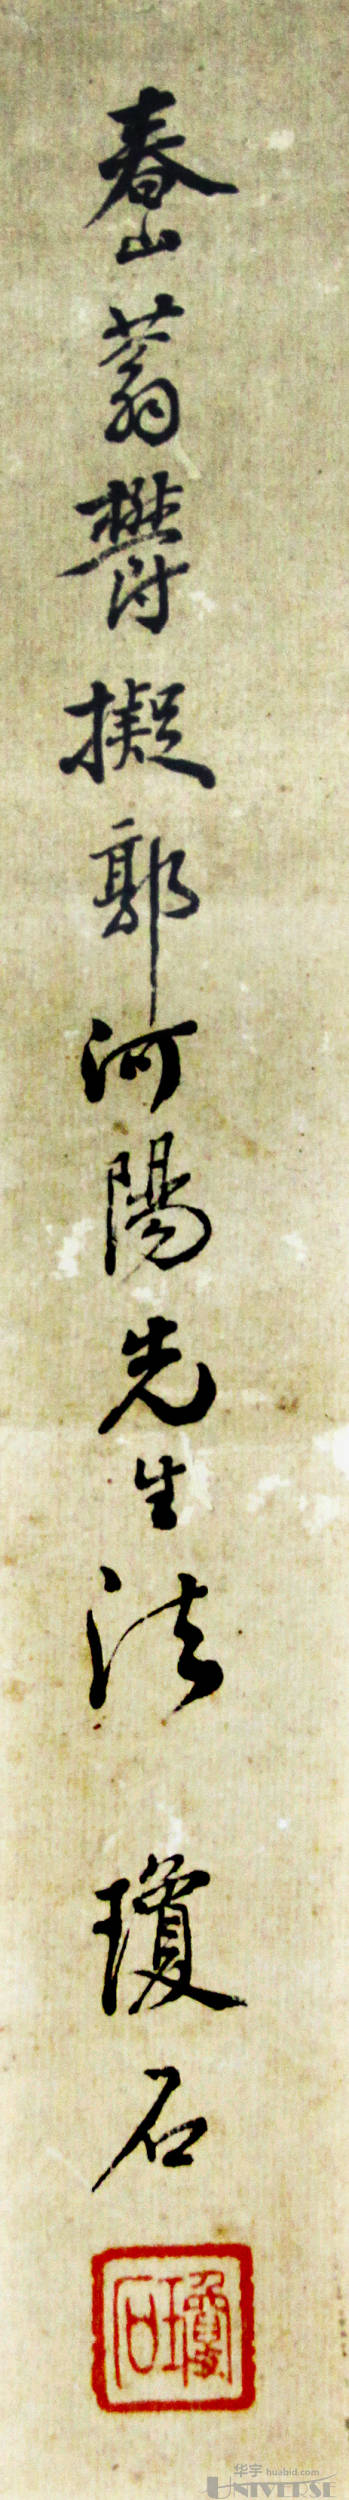 春山蓊欎擬郭河陽先生法 瓊石
瓊石
华宇 huabid.com
UNIVERSE